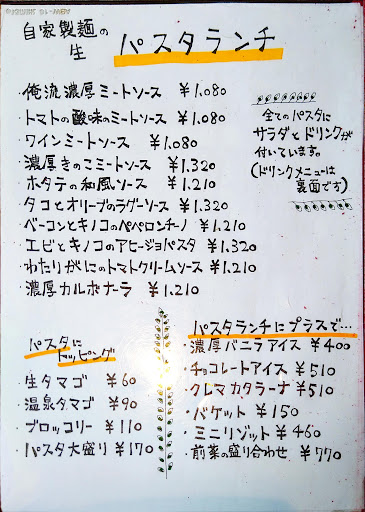 自家製麺の
生 パスタランチ
・俺流濃厚ミートソース ￥1.080
・トマトの酸味のミートソース ￥1.080
・ワインミートソース ￥1.080
・濃厚きのこミートソース ￥1.320
・ホタテの和風ソース ￥1.210
・タコとオリーブのラグーソース ￥1.320
・ベーコンとキノコのペペロンチーノ ￥1.210
・エビとキノコのアヒージョパスタ ￥1.320
・わたりがにのトマトクリームソース ￥1.210
・濃厚カルボナーラ ￥1.210
全てのパスタに
サラダとドリンクが
付いています。
(ドリンクメニューは
裏面です)
パスタに
トッピング
・生タマゴ ￥60
・温泉タマゴ ￥90
・ブロッコリー ￥110
・パスタ大盛り ￥170
パスタランチにプラスで…
・濃厚バニラアイス ￥400
・チョコレートアイス ￥510
・クレマカタラーナ ￥510
・バケット ￥150
・ミニリゾット ￥460
・前菜の盛り合わせ ￥770